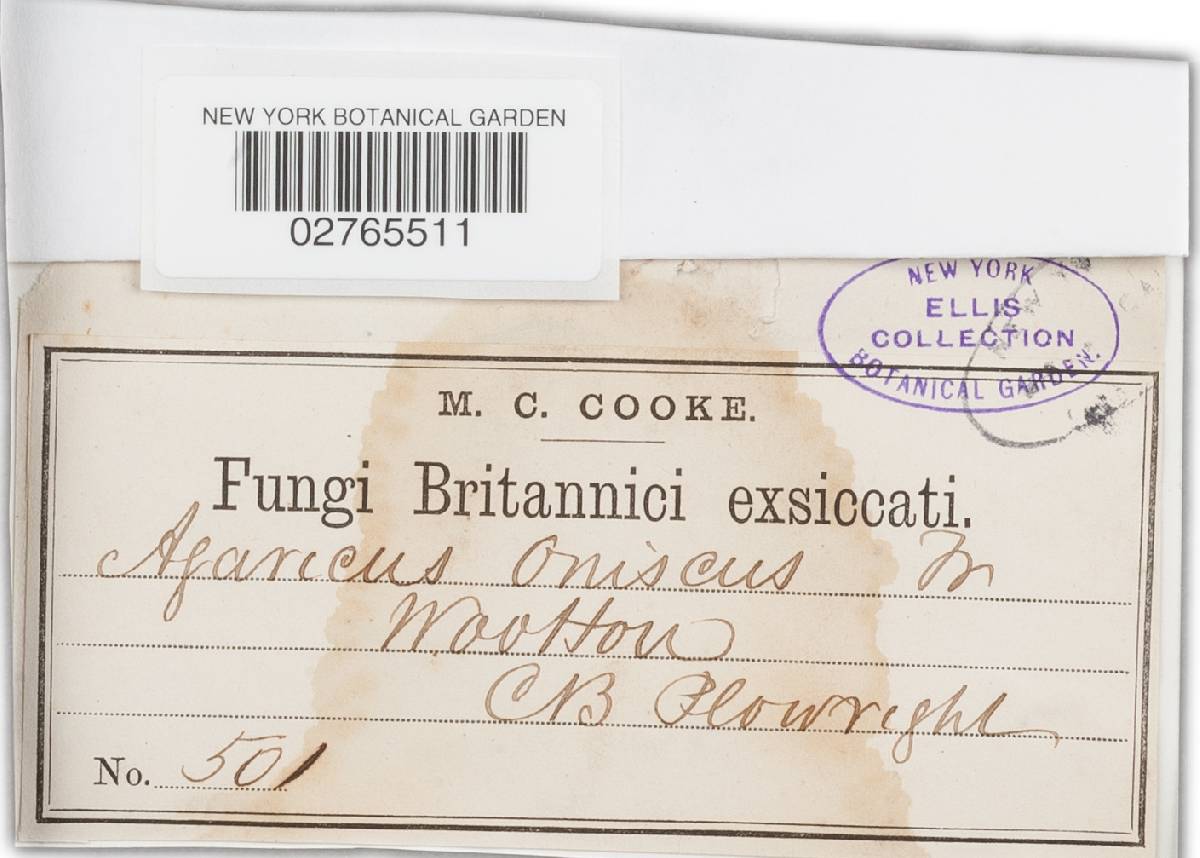 NEW YORK BOTANICAL GARDEN
02765511
NEW YORK
ELLIS
COLLECTION
BOTANICAL GARDEN.
M. C. COOKE.
Fungi Britannici exsiccati.
Agaricus Oniscus Fr
Wootton
CB Plowright
No. 501